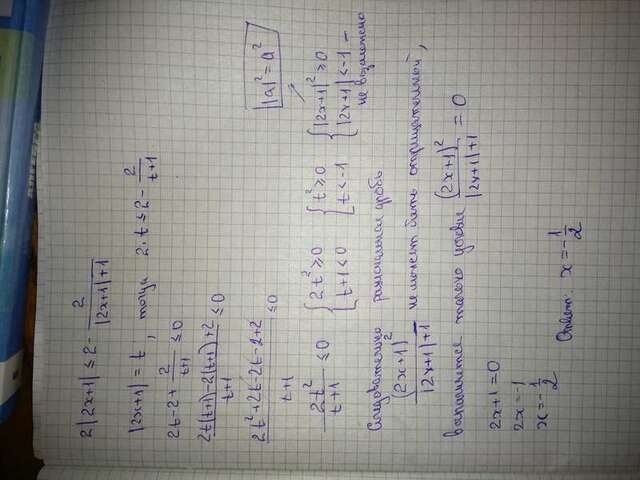 2|2x+1| ≤ 2 - 2/(|2x+1|+1)
|2x+1| = t, тогда 2·t ≤ 2 - 2/(t+1)
2t-2+ 2/(t+1) ≤ 0
(2t(t+1)-2(t+1)+2)/(t+1) ≤ 0
(2t²+2t-2t-2+2)/(t+1) ≤ 0
|a|² = a²
2t²/(t+1) ≤ 0 { 2t² ≥ 0 { t² ≥ 0 { |2x+1|² ≥ 0
{ t+1 < 0 { t < -1 { |2x+1| < -1 –
не возможно
Следовательно рациональная дробь
(2x+1)²/(|2x+1|+1) – не может быть отрицательной,
выполняется только условие (2x+1)²/(|2x+1|+1) = 0
2x+1=0
2x=-1
x=-1/2 Ответ: x=-1/2